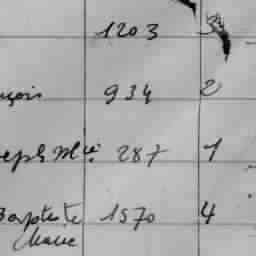 1203 3
nçois 934 2
eph Mie 287 1
Baptiste 1570 4
Marie